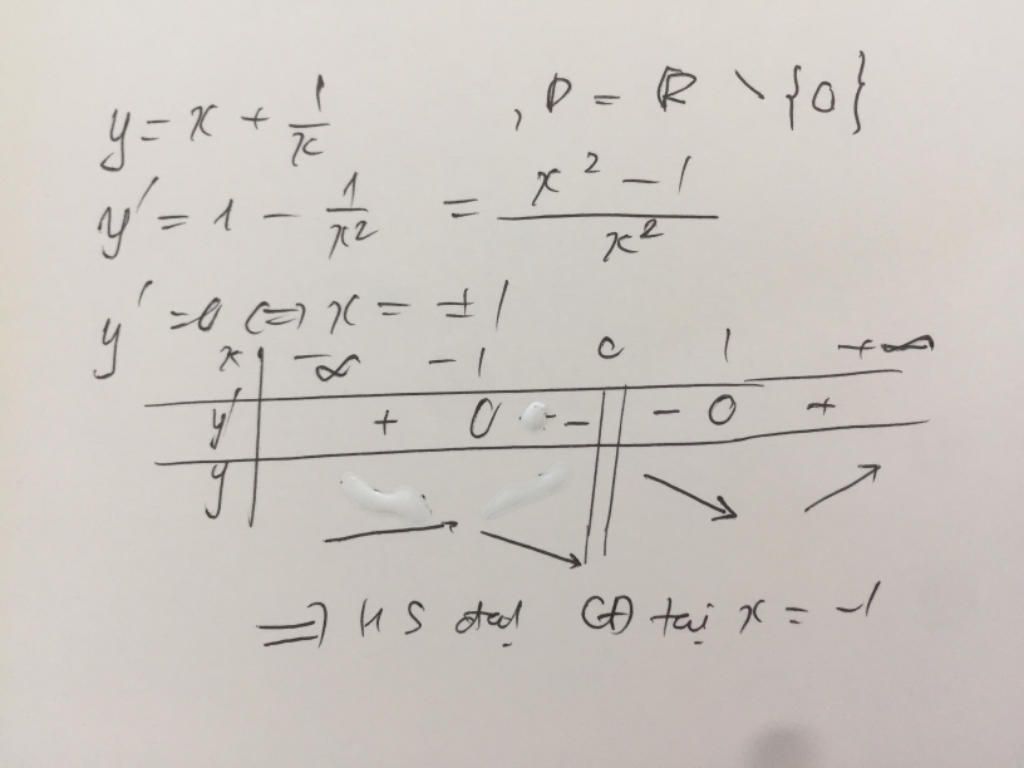 y = x + 1/x , D = R \ {0}
y' = 1 - 1/x² = (x² - 1)/x²
y' = 0 <=> x = ±1
x -∞ -1 0 1 +∞
y' + 0 - || - 0 +
y → ↘ || ↘ ↗
=> HS đạt CĐ tại x = -1